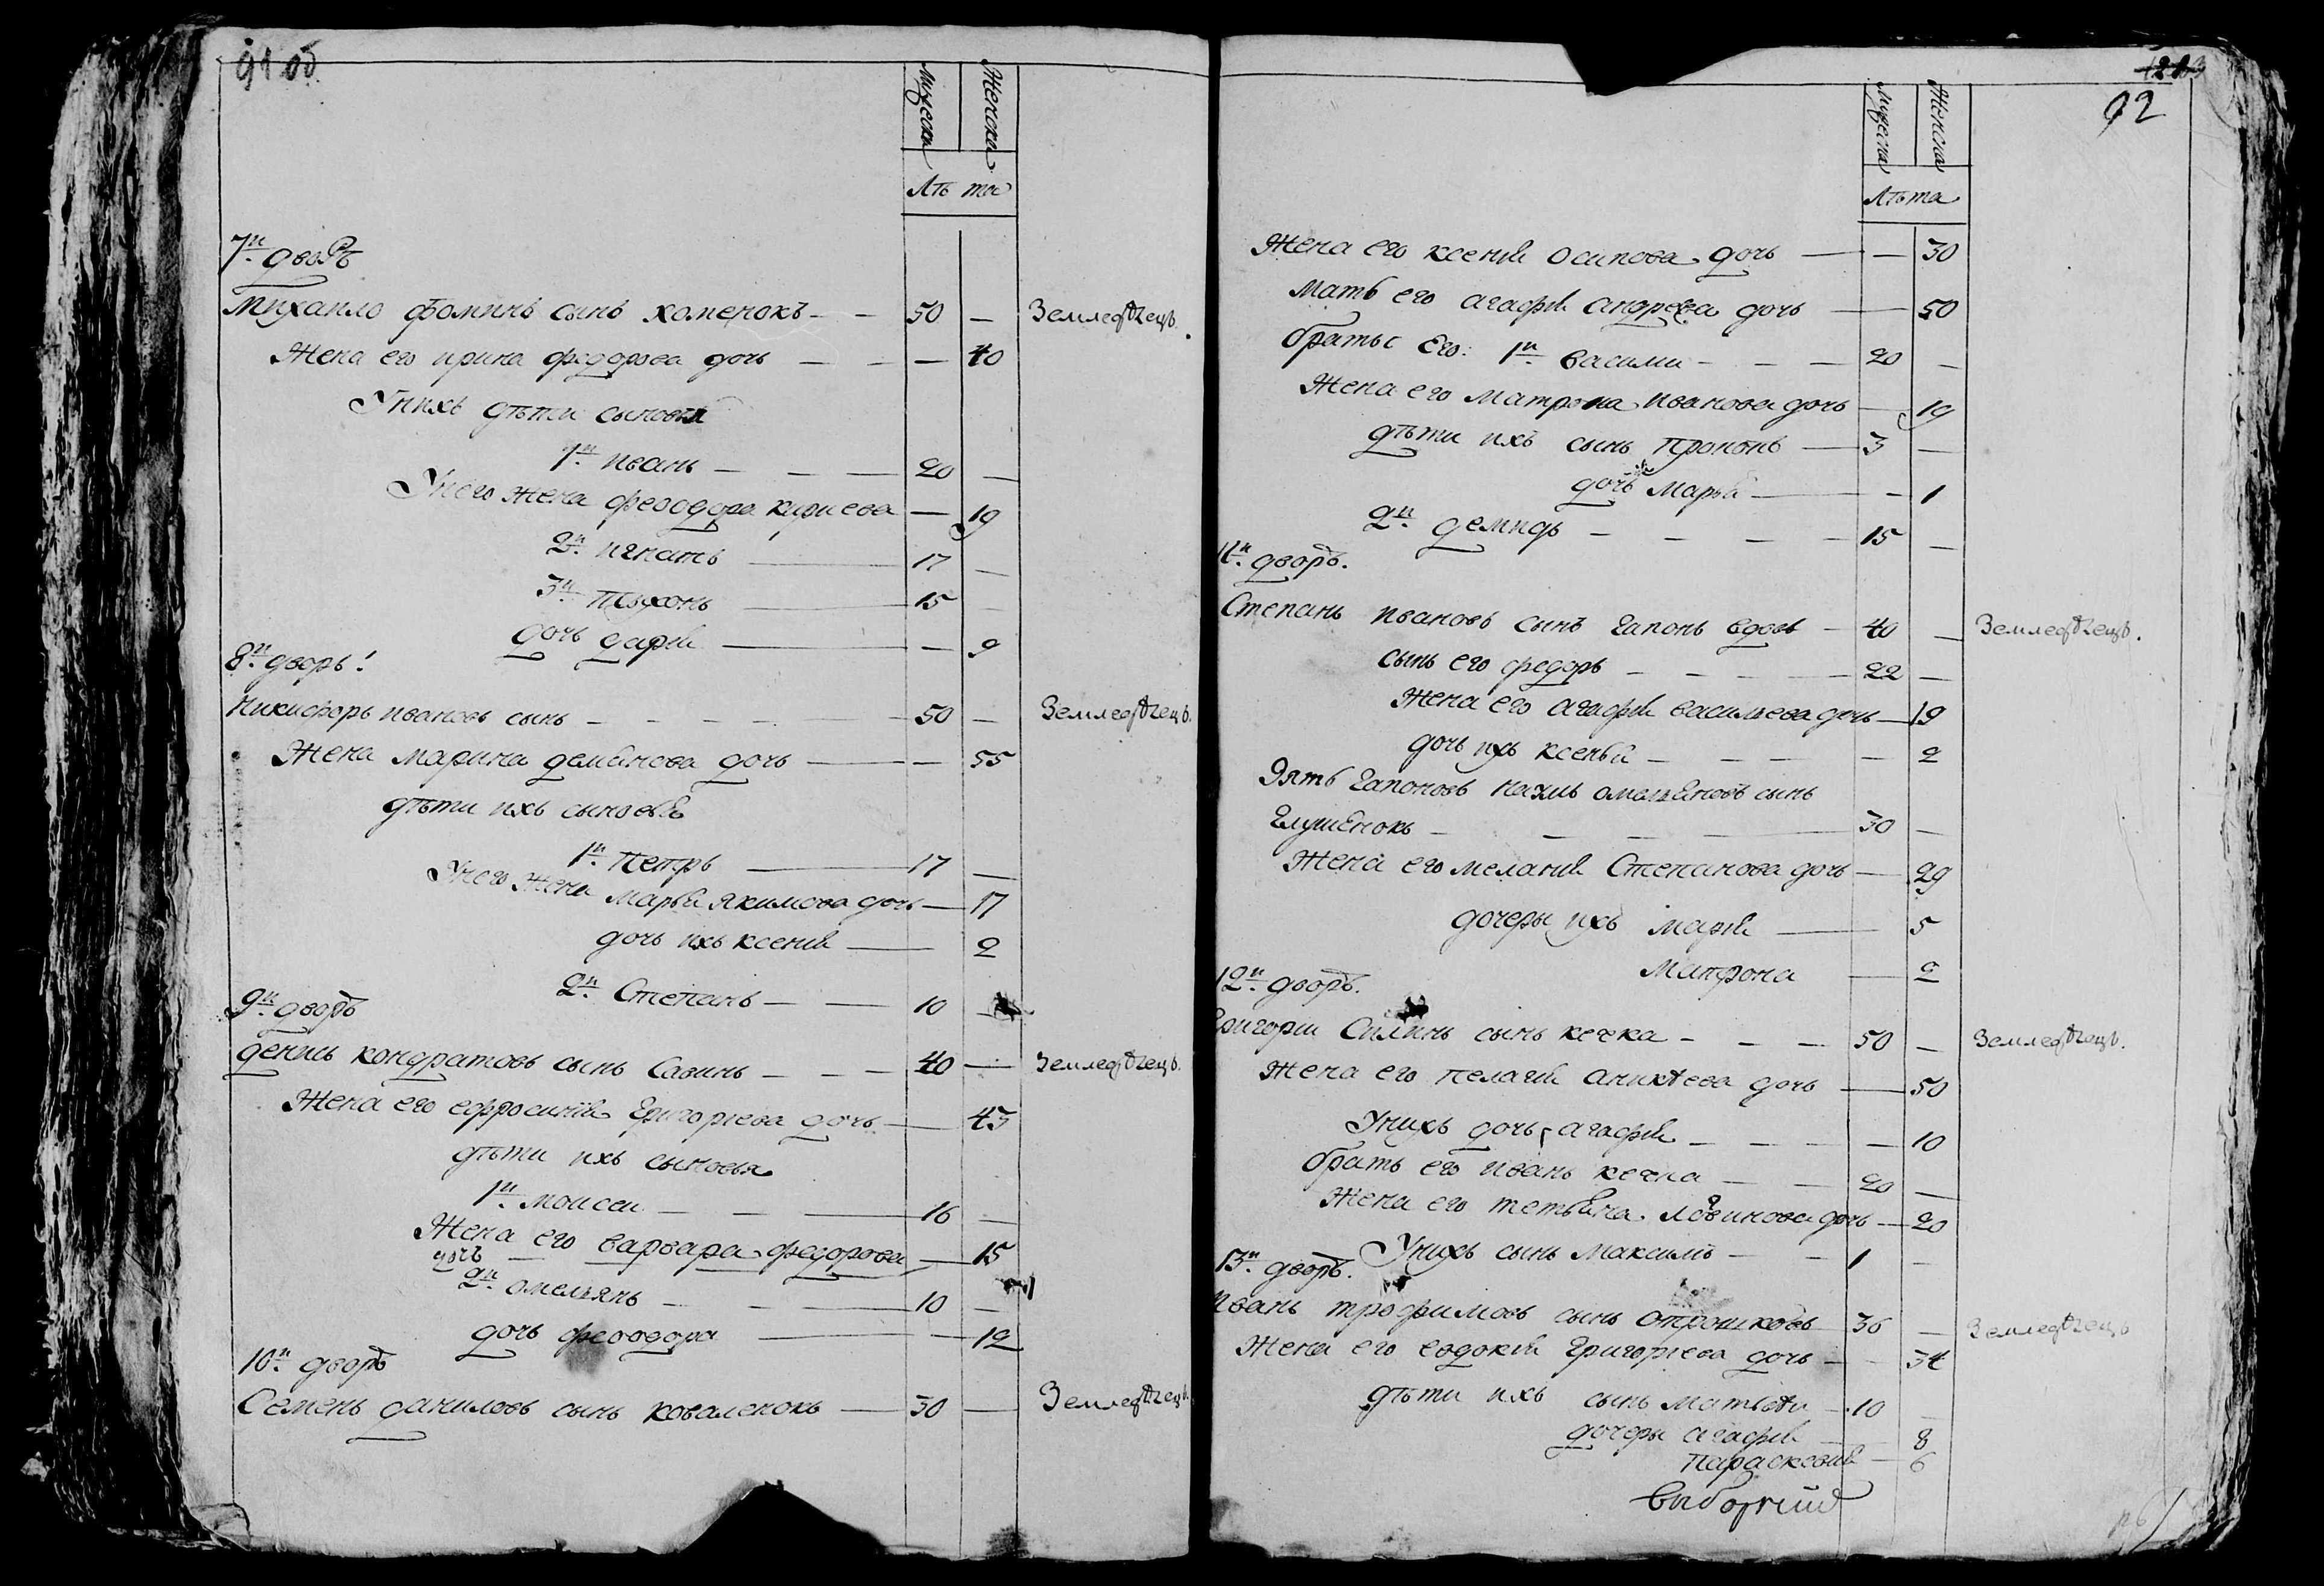 91 об.
Мужеска Женска
Лѣта
7й дворъ
Михаило Фоминъ сынъ хоменокъ — 50 — Землед̃ѣлецъ.
Жена его ирина федорова дочь — 40
У нихъ дѣти сыновья
1й иванъ — 20 —
У него жена феодора кириева — 19
2й игнатъ — 17 —
3й тихонъ — 15 —
дочь дария — 9
8й дворъ.
Никифоръ ивановъ сынъ — 50 — Земледѣлецъ.
Жена марина демьянова дочь — 55
дѣти ихъ сыновья
1й петръ — 17 —
У него жена марья якимова дочь — 17
дочь ихъ ксения — 2
2й Степанъ — 10 —
9й дворъ
денисъ кондратовъ сынъ Савинъ — 40 — Земледѣлецъ.
Жена его ефросиния григорьева дочь — 43
дѣти ихъ сыновья
1й моисеи — 16 —
Жена его варвара федорова — 15
дочь
2й омельянъ — 10 —
дочь феодора — 12
10й дворъ
Семенъ даниловъ сынъ коваленокъ — 30 — Земледѣлецъ.
92
Мужеска Женска
Лѣта
Жена его ксения осипова дочь — 30
Мать его агафия андреева дочь — 50
братья его: 1й василии — 20 —
Жена его матрона иванова дочь — 19
дѣти ихъ сынъ прокопъ — 3 —
дочь марья — 1
2й демидъ — 15 —
11й дворъ.
Степанъ ивановъ сынъ гапонъ вдовъ — 40 — Земледѣлецъ.
сынъ его федоръ — 22 —
Жена его агафия васильева дочь — 19
дочь ихъ ксенья — 2
Зять гапоновъ наумъ омельяновъ сынъ
глушенокъ — 30 —
Жена его мелания Степанова дочь — 29
дочеры ихъ мария — 5
Матрона — 2
12й дворъ.
Григории Силинъ сынъ кечка — 50 — Земледѣлецъ.
Жена его пелагия аникѣева дочь — 50
У нихъ дочь агафия — 10
братъ его иванъ кечка — 20 —
Жена его тетьяна логвинова дочь — 20
У нихъ сынъ максимъ — 1 —
13й дворъ.
иванъ трофимовъ сынъ отрошковъ 36 — Земледѣлецъ
Жена его евдокия григорьева дочь — 34
дѣти ихъ сынъ матвѣи — 10 —
дочеры агафия — 8
параскевия — 6
выборнии